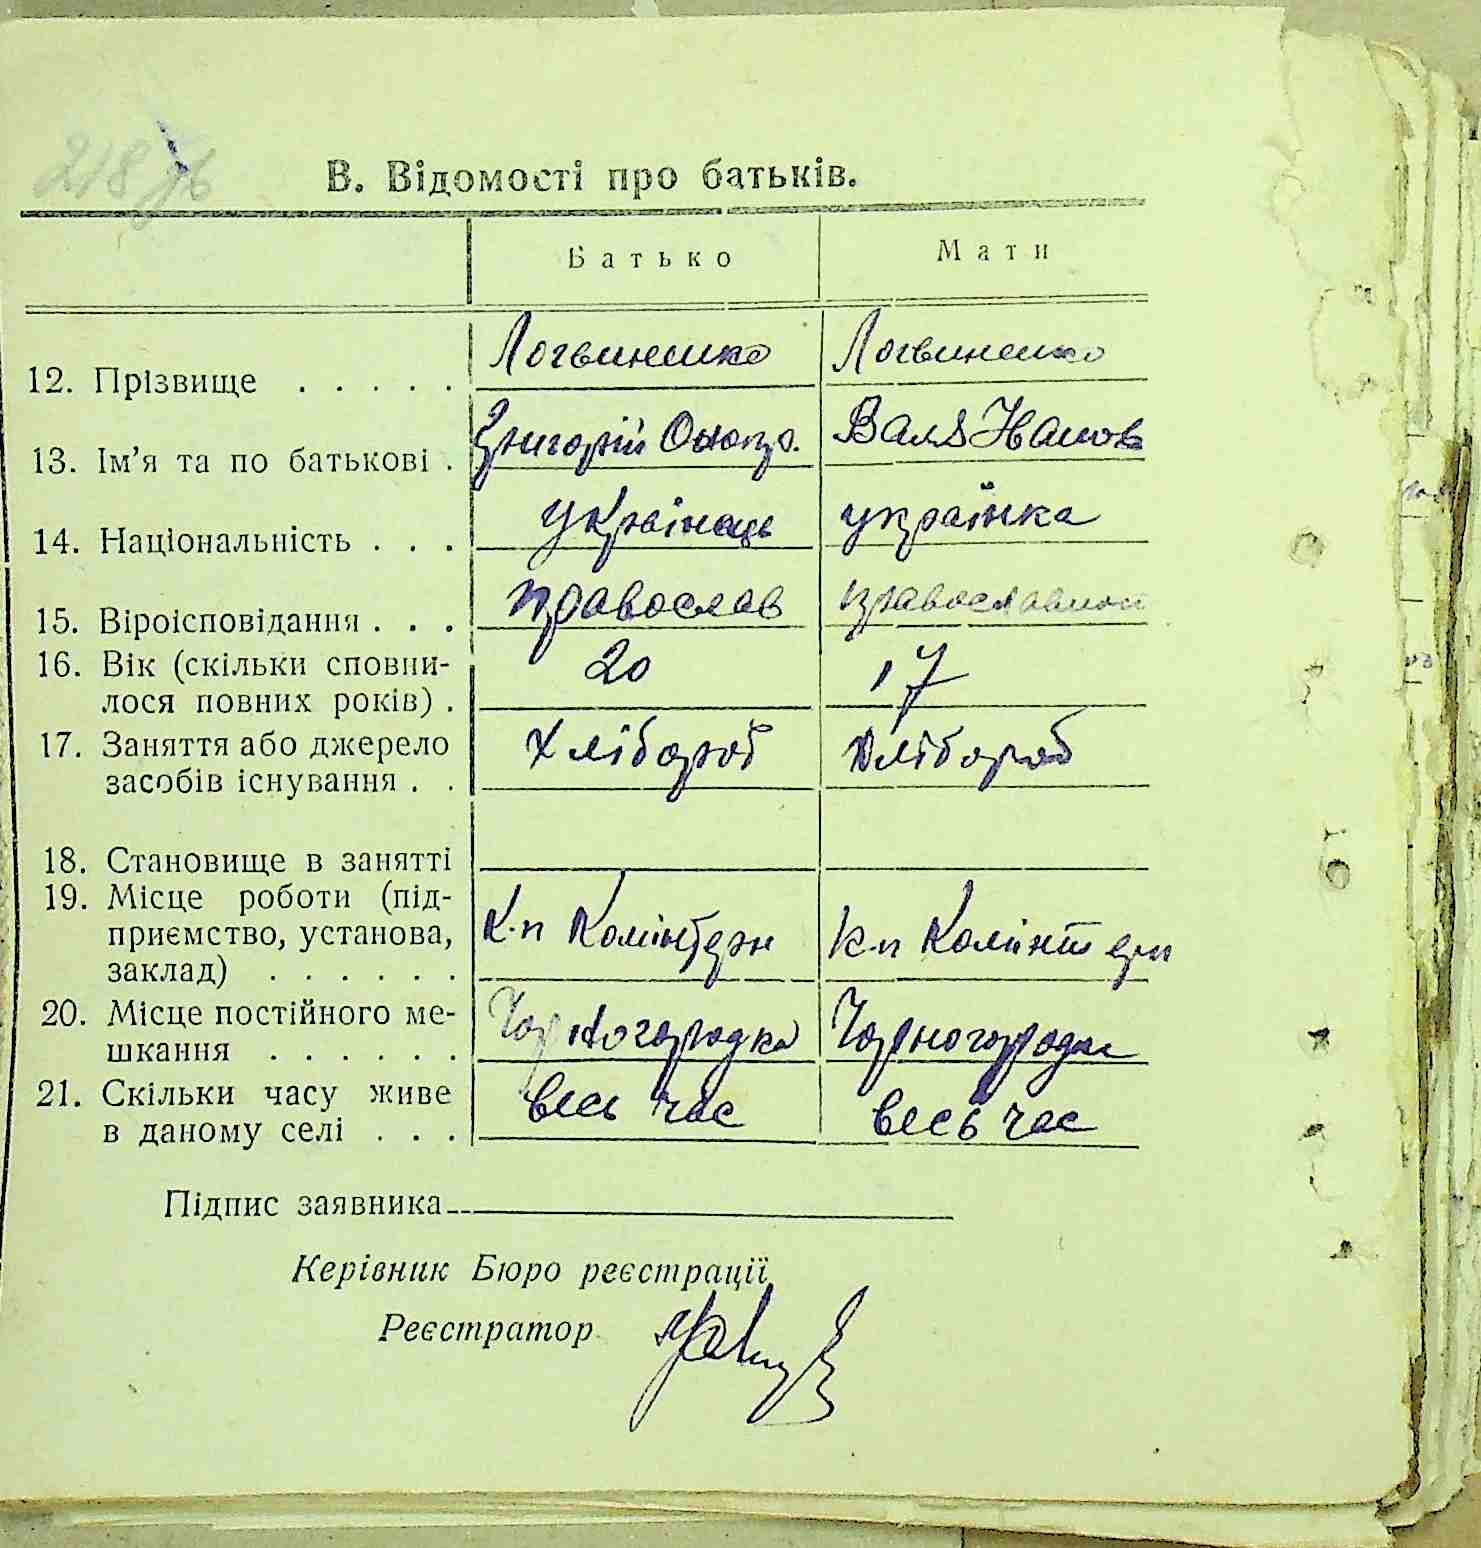 В. Відомості про батьків.
Батько Мати
12. Прізвище . . . . . Логвиненко Логвиненко
13. Ім'я та по батькові . Григорій Онопр. Валя Іванов
14. Національність . . . українець українка
15. Віроісповідання . . . православ православної
16. Вік (скільки сповни-
лося повних років) . 20 17
17. Заняття або джерело
засобів існування . . Хлібороб Хлібороб
18. Становище в занятті
19. Місце роботи (під-
приємство, установа, К-п Комінтерн К-п Комінтерн
заклад) . . . . . .
20. Місце постійного ме-
шкання . . . . . . Чорногородка Чорногородка
21. Скільки часу живе
в даному селі . . . весь час весь час
Підпис заявника
Керівник Бюро реєстрації
Реєстратор